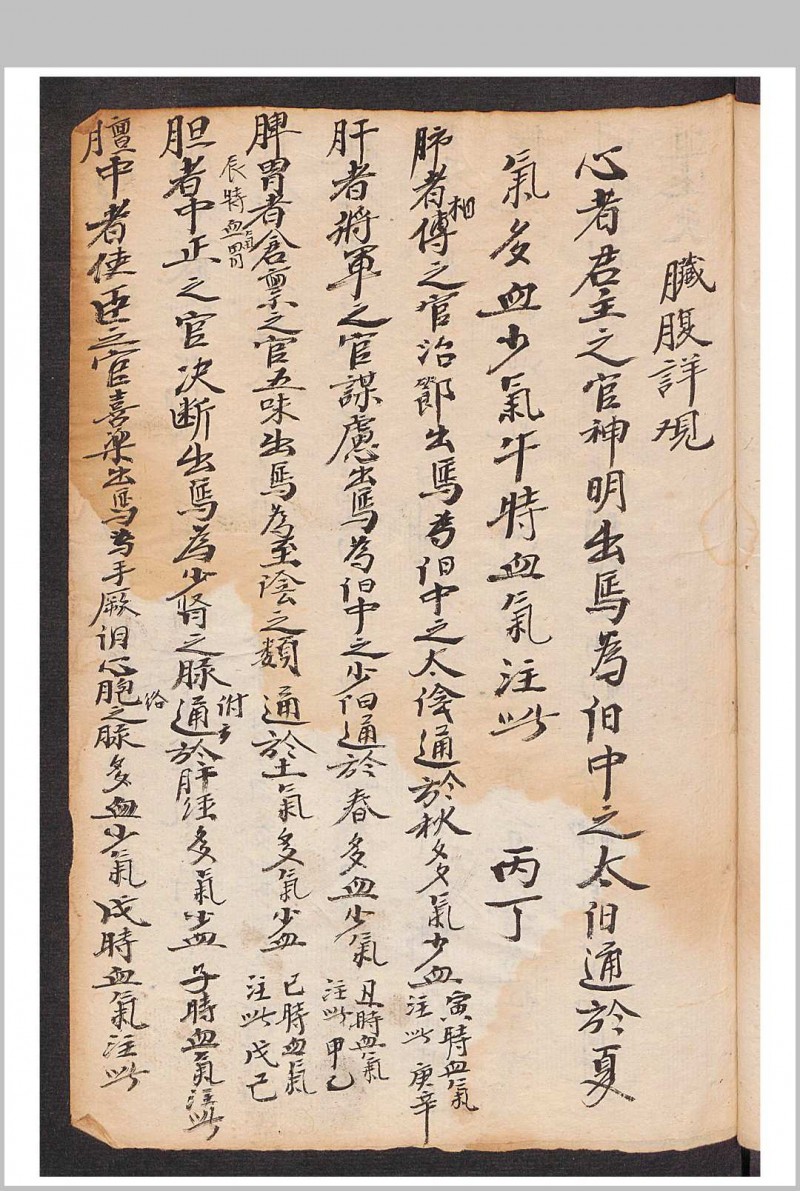 臟腹詳观
心者君主之官神明出焉為伯中之太伯通於夏
氣多血少氣午特血氣注此 丙丁
肺者相傅之官治節出焉為伯中之太陰通於秋多氣少血寅時血氣注此 庚辛
肝者將軍之官謀慮出焉為伯中之少伯通於春多血少氣丑時血氣注此 甲乙
脾胃者倉稟之官五味出焉為至陰之類通於土氣多氣少血巳時血氣注此 戊己
辰特血氣胃
胆者中正之官决断出焉為少肾之脉附通於肝经多氣少血子時血氣注此
膻中者使臣之官喜楽出焉為手厥阴心胞络之脉多血少氣戌時血氣注此